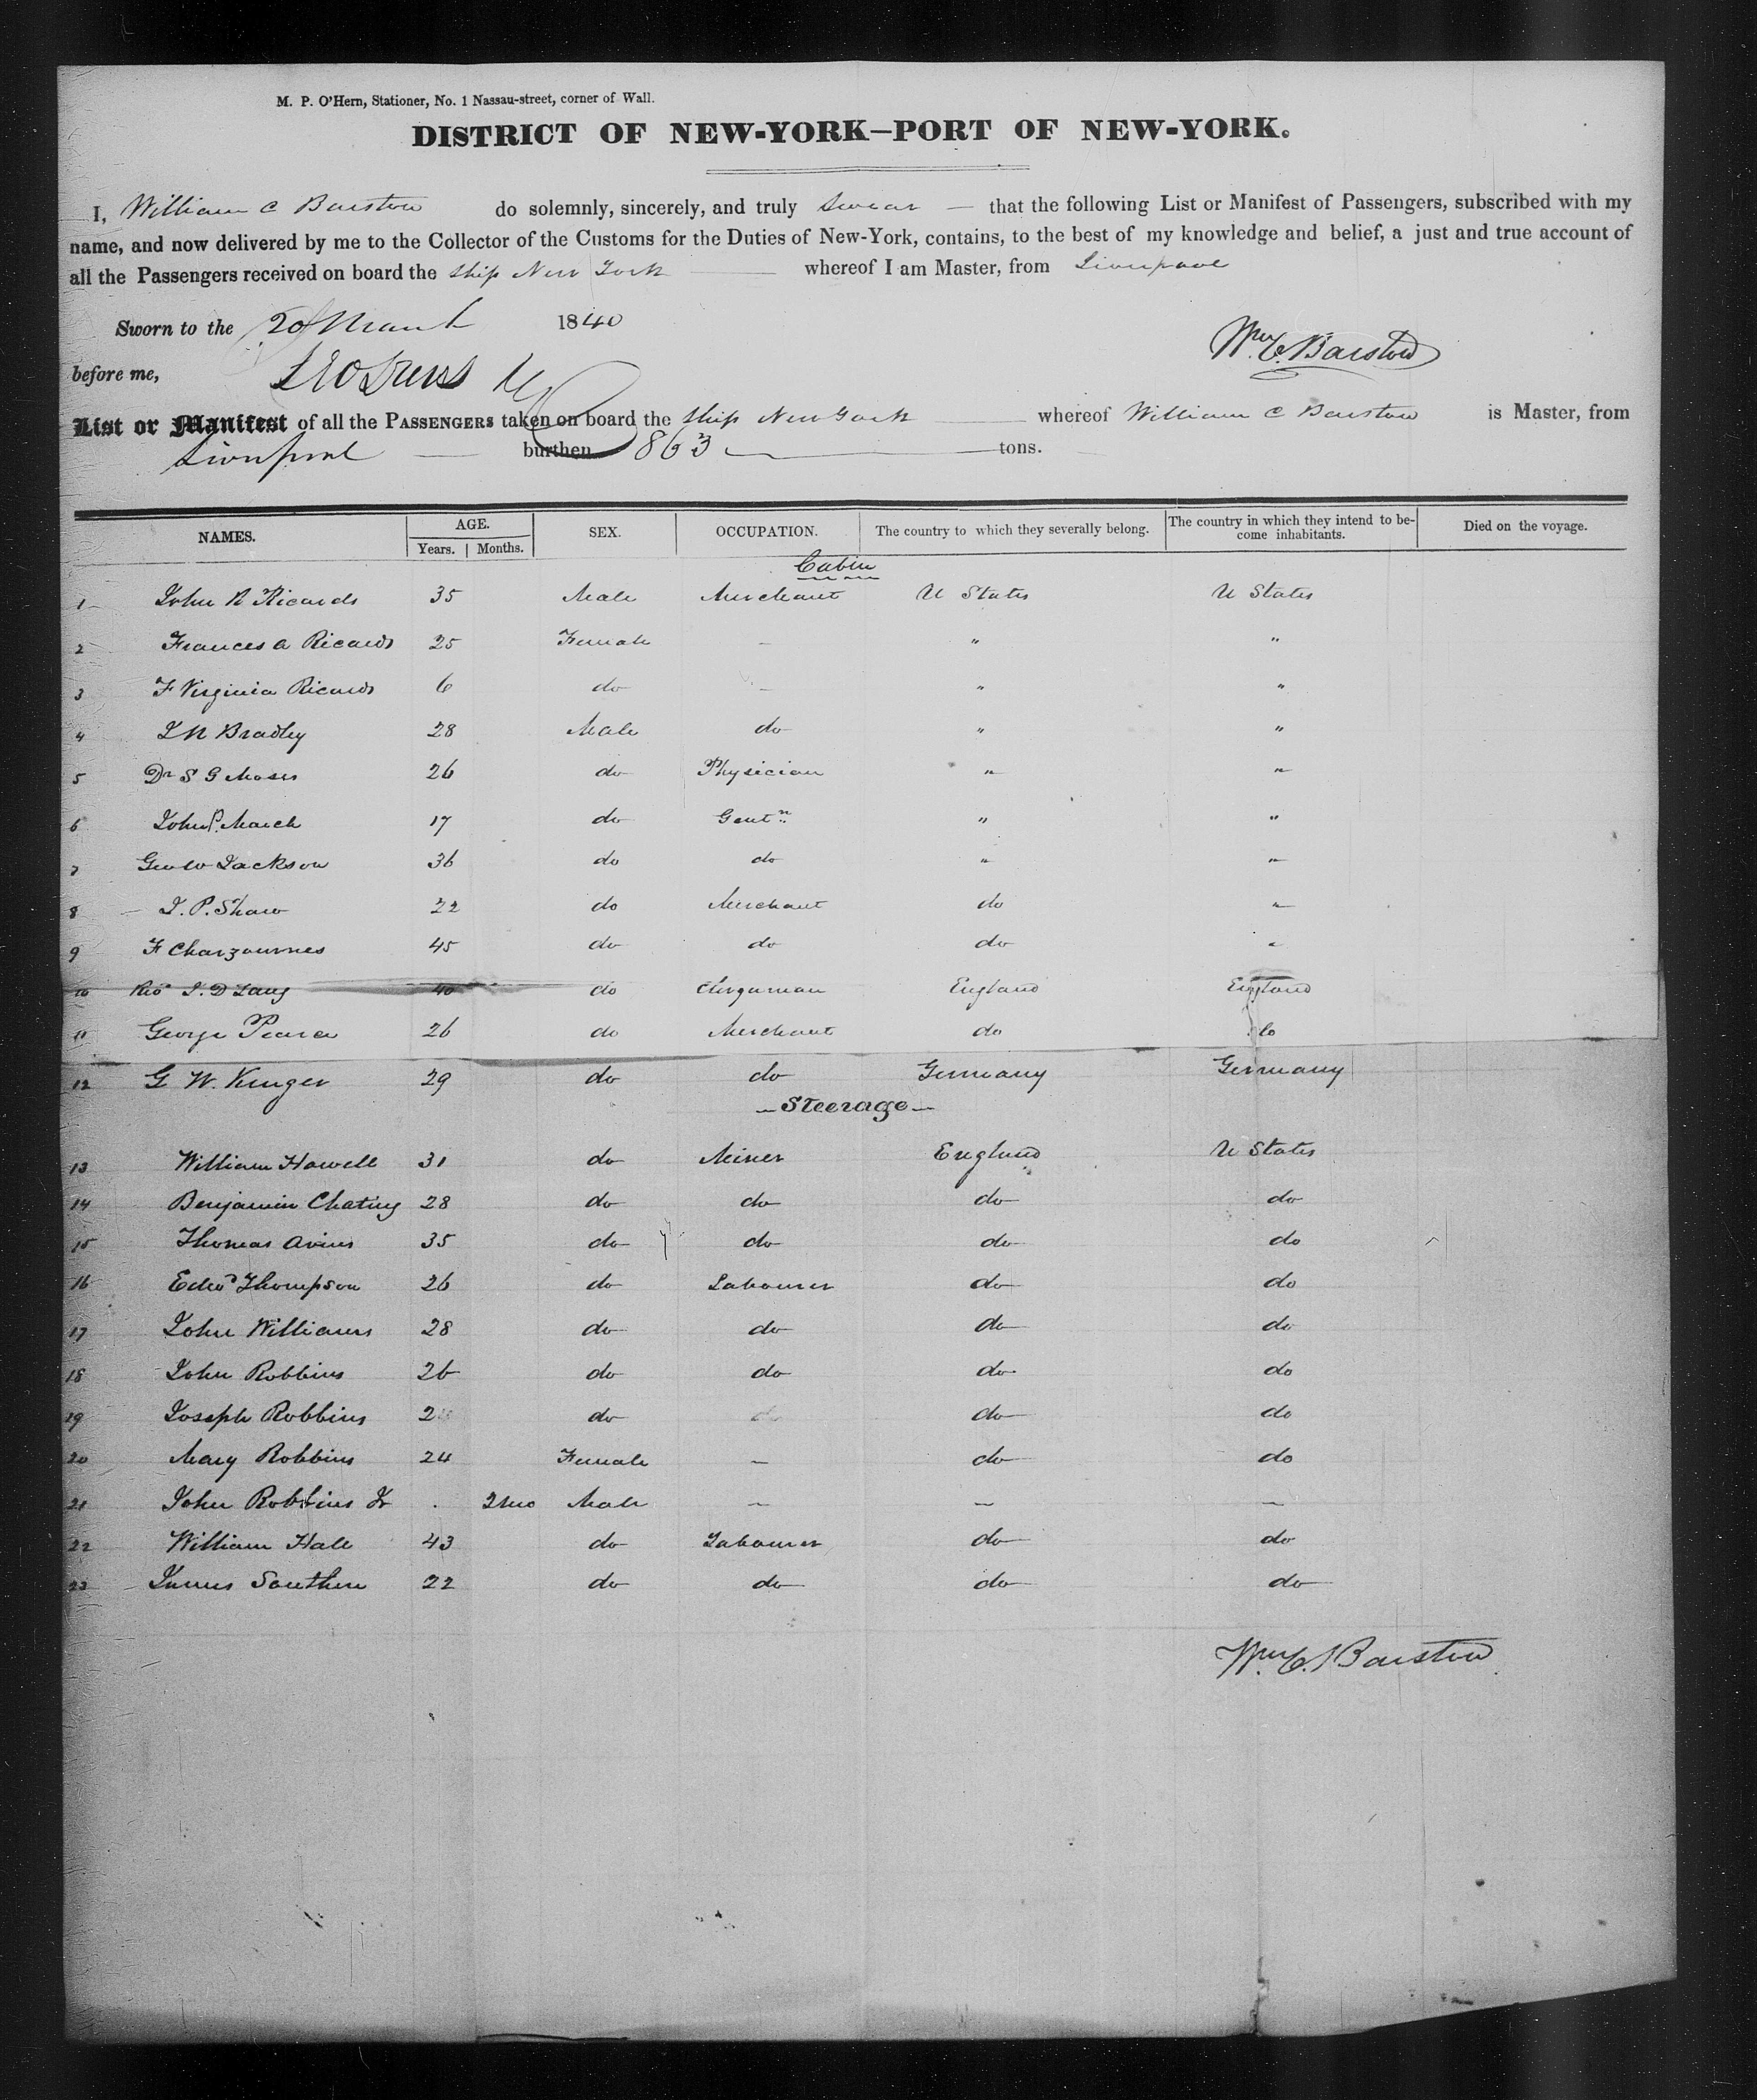 M. P. O'Hern, Stationer, No. 1 Nassau-street, corner of Wall.
DISTRICT OF NEW-YORK—PORT OF NEW-YORK.
I, William C Barstow do solemnly, sincerely, and truly swear — that the following List or Manifest of Passengers, subscribed with my
name, and now delivered by me to the Collector of the Customs for the Duties of New-York, contains, to the best of my knowledge and belief, a just and true account of
all the Passengers received on board the Ship New York whereof I am Master, from Liverpool
Sworn to the 20 March 1840
Wm. C. Barstow
before me,
List or Manifest of all the PASSENGERS taken on board the Ship New York whereof William C Barstow is Master, from
Liverpool — burthen 863 — tons.
NAMES. AGE. Years. Months. SEX. OCCUPATION. The country to which they severally belong. The country in which they intend to be-come inhabitants. Died on the voyage.
Cabin
1 John R Ricards 35 Male Merchant U States U States
2 Frances A Ricards 25 Female — " "
3 F Virginia Ricards 6 do — " "
4 J N Bradley 28 Male do " "
5 Dr S G Moses 26 do Physician " "
6 John P. March 17 do Gentn " "
7 Geo W Jackson 36 do do " "
8 J. P. Shaw 22 do Merchant do "
9 F Charzournes 45 do do do "
10 Revd J. D Lang 40 do Clergyman England England
11 George Pearce 26 do Merchant do do
12 G W. Kruger 29 do do Germany Germany
— Steerage —
13 William Howell 31 do Miner England U States
14 Benjamin Chating 28 do do do do
15 Thomas Avins 35 do do do do
16 Edwd Thompson 26 do Labourer do do
17 John Williams 28 do do do do
18 John Robbins 26 do do do do
19 Joseph Robbins do do do do
20 Mary Robbins 24 Female — do do
21 John Robbins Jr . 2 mo Male — — —
22 William Hale 43 do Labourer do do
23 James Southern 22 do do do do
Wm. C. Barstow